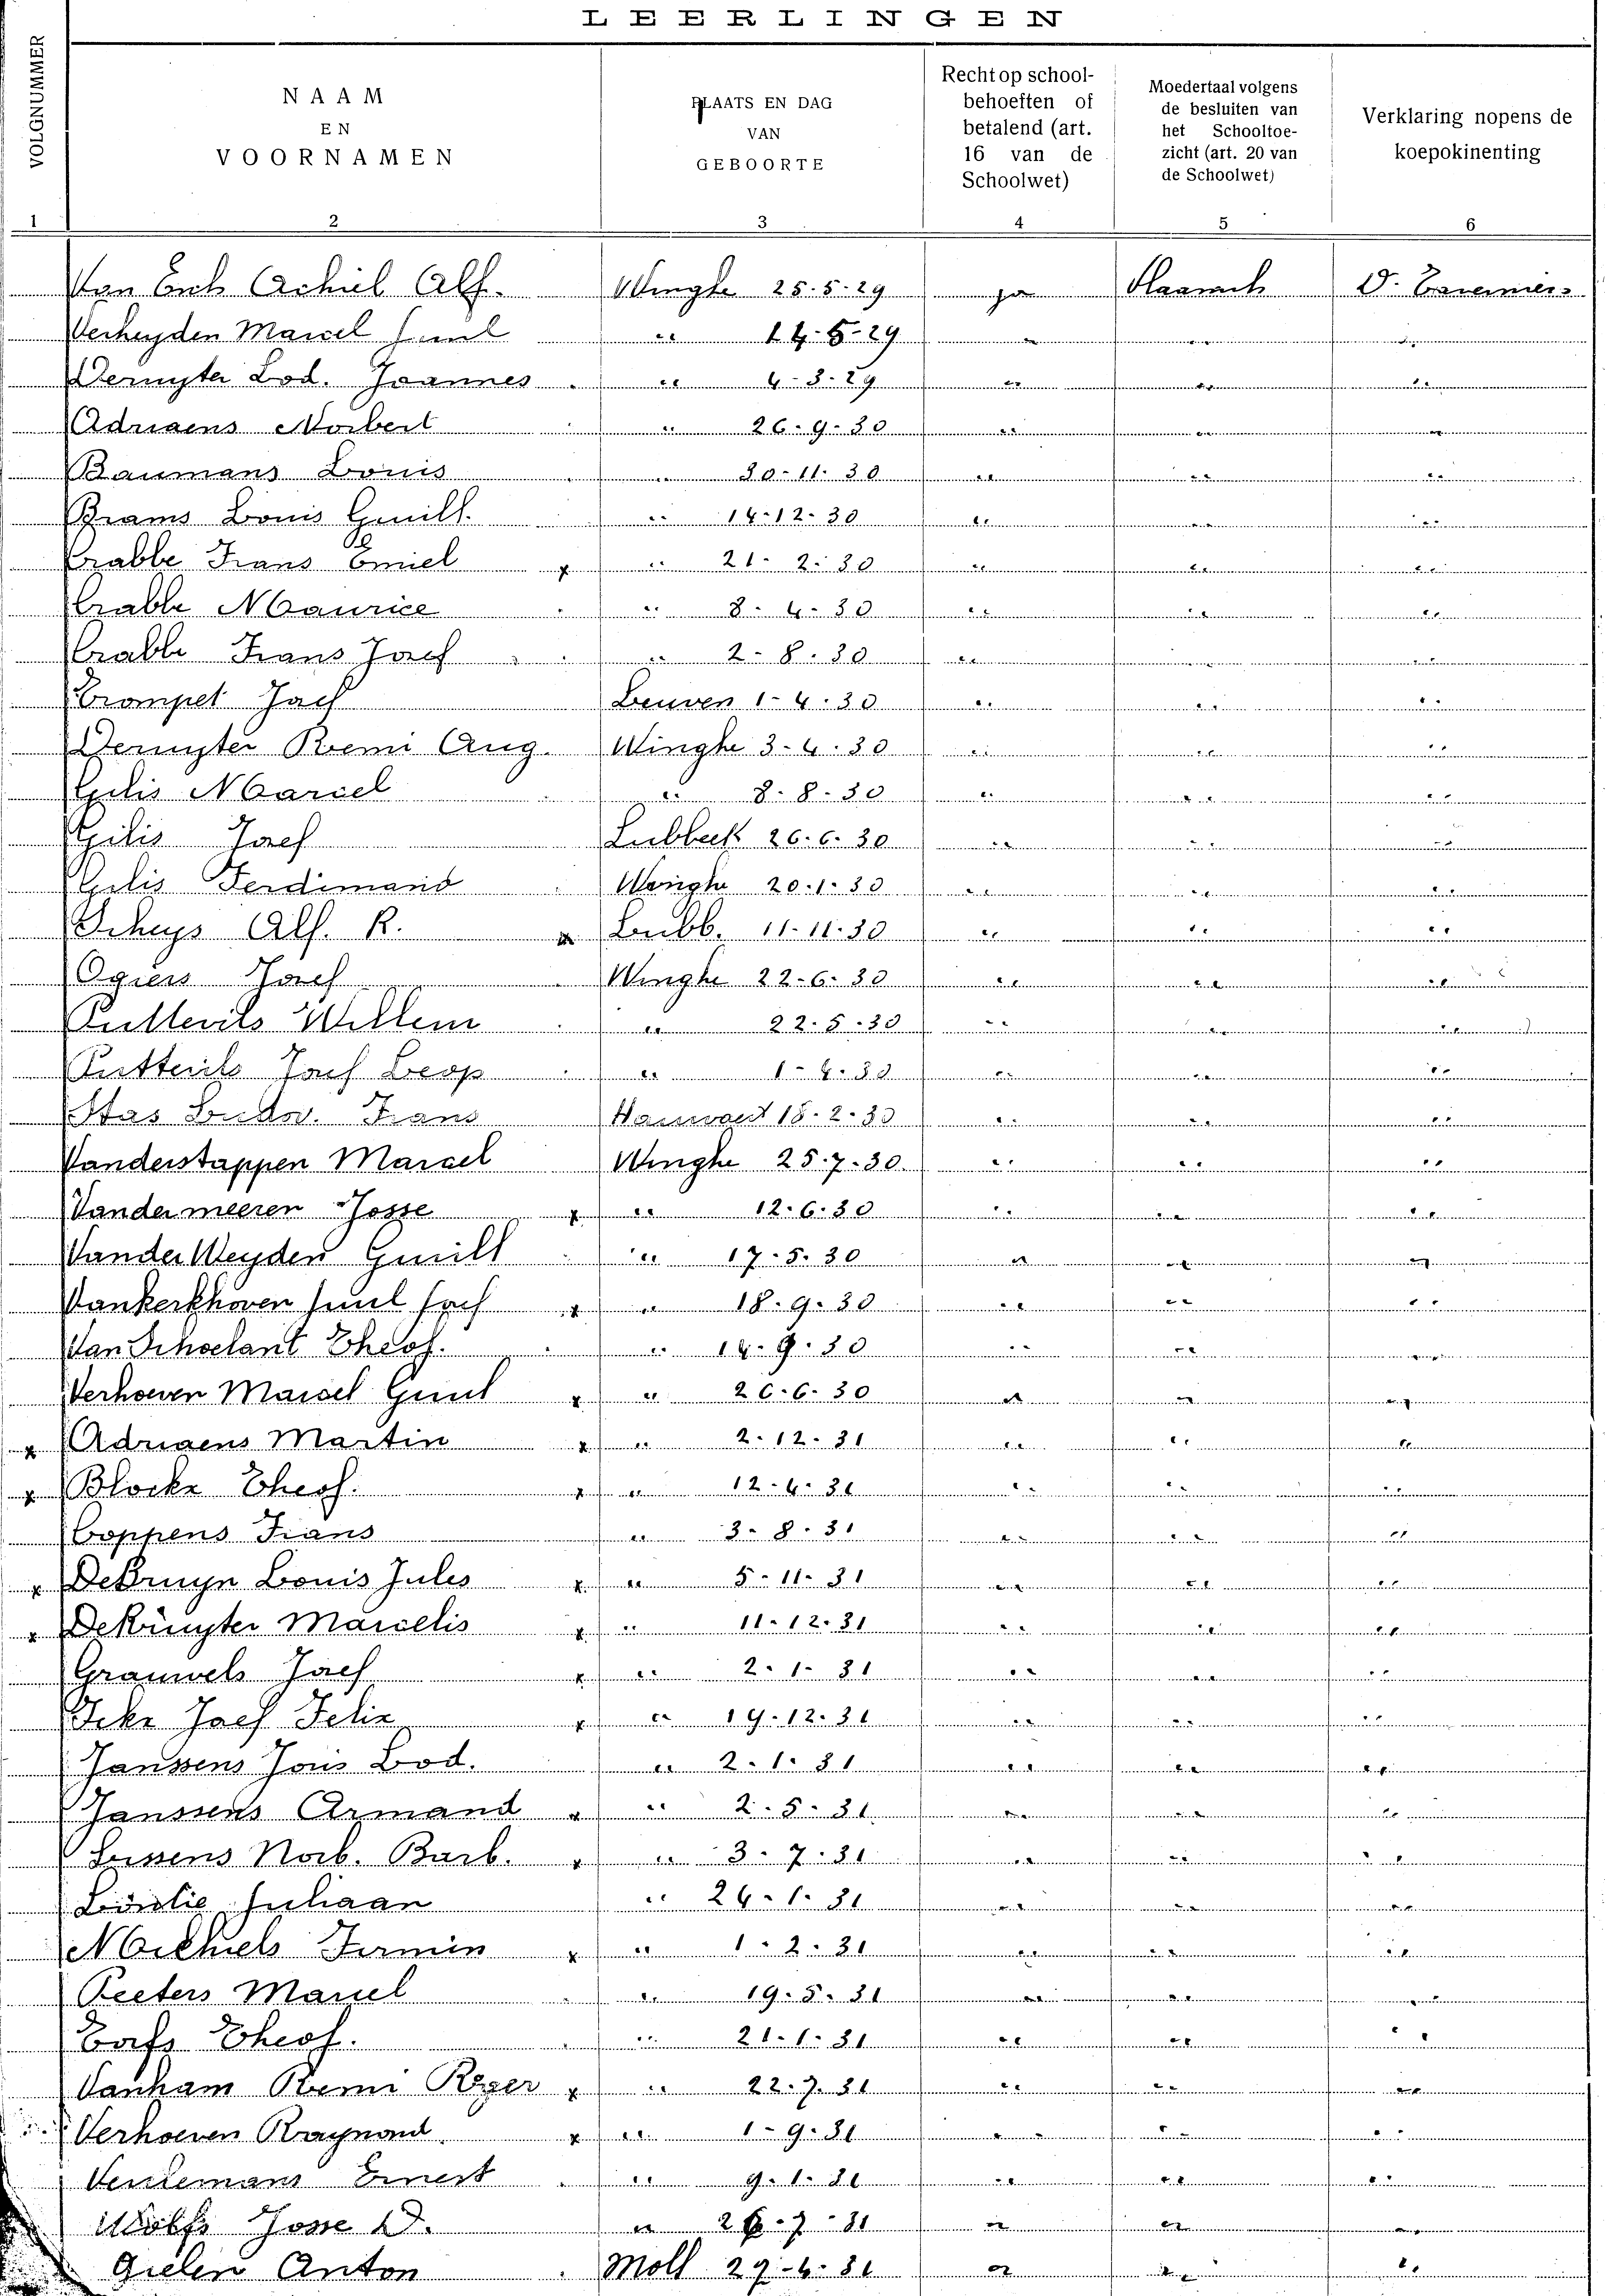 LEERLINGEN
VOLGNUMMER
NAAM
EN
VOORNAMEN
PLAATS EN DAG
VAN
GEBOORTE
Recht op school-
behoeften of
betalend (art.
16 van de
Schoolwet)
Moedertaal volgens
de besluiten van
het Schooltoe-
zicht (art. 20 van
de Schoolwet)
Verklaring nopens de
koepokinenting
1 2 3 4 5 6
Van Achiel Alf. Winghe 25.5.29 ja Vlaamsch
Verheyden Marcel Emiel " 14.5.29 " " "
Deruyter Lod. Joannes " 4-3-29 " " "
Adriaens Norbert " 26-9-30 " " "
Baumans Louis " 30-11-30 " " "
Brams Louis Guill. " 14-12-30 " " "
Crabbe Frans Emiel x " 21-2-30 " " "
Crabbe Maurice " 8-4-30 " " "
Crabbe Frans Jozef " 2-8-30 " " "
Crompet Jozef Leuven 1-4-30 " " "
Deruyter Remi Aug. Winghe 3-4-30 " " "
Gilis Marcel " 8-8-30 " " "
Gilis Jozef Lubbeek 26.6.30 " " "
Gilis Ferdinand Winghe 20.1.30 " " "
Scheys Alf. R. x Lubb. 11-11-30 " " "
Ogiers Jozef Winghe 22-6-30 " " "
Puttevils Willem " 22.5.30 " " "
Puttevils Jozef Leop " 1-4-30 " " "
Stas Ludov. Frans Hauwaert 18-2-30 " " "
Vanderstappen Marcel Winghe 25.7.30 " " "
Vandermeeren Josse x " 12.6.30 " " "
VanderWeyden Guill " 17.5.30 " " "
Vankerkhoven Emiel Jozef x " 18.9.30 " " "
Van Schoelant Theof. " 14.9.30 " " "
Verhoeven Marcel x " 26.6.30 " " "
x Adriaens Martin x " 2-12-31 " " "
x Blockx Theof. x " 12-4-31 " " "
Coppens Frans " 3-8-31 " " "
x DeBruyn Louis Jules x " 5-11-31 " " "
x DeRuyter Marcelis x " 11-12-31 " " "
Grauwels Jozef x " 2-1-31 " " "
Jozef Felix x " 19-12-31 " " "
Janssens Lod. " 2-1-31 " " "
Janssens Armand x " 2-5-31 " " "
Norb. Barb. x " 3-7-31 " " "
Juliaan " 24-1-31 " " "
Michiels Firmin x " 1-2-31 " " "
Peeters Marcel " 19.5.31 " " "
Theof. " 21-1-31 " " "
Vanham Remi Roger x " 22-7-31 " " "
Verhoeven Raymond x " 1-9-31 " " "
Ernest " 9-1-31 " " "
Wolfs Josse D. " 7-31 " " "
Gielen Anton Moll 29-4-31 " " "